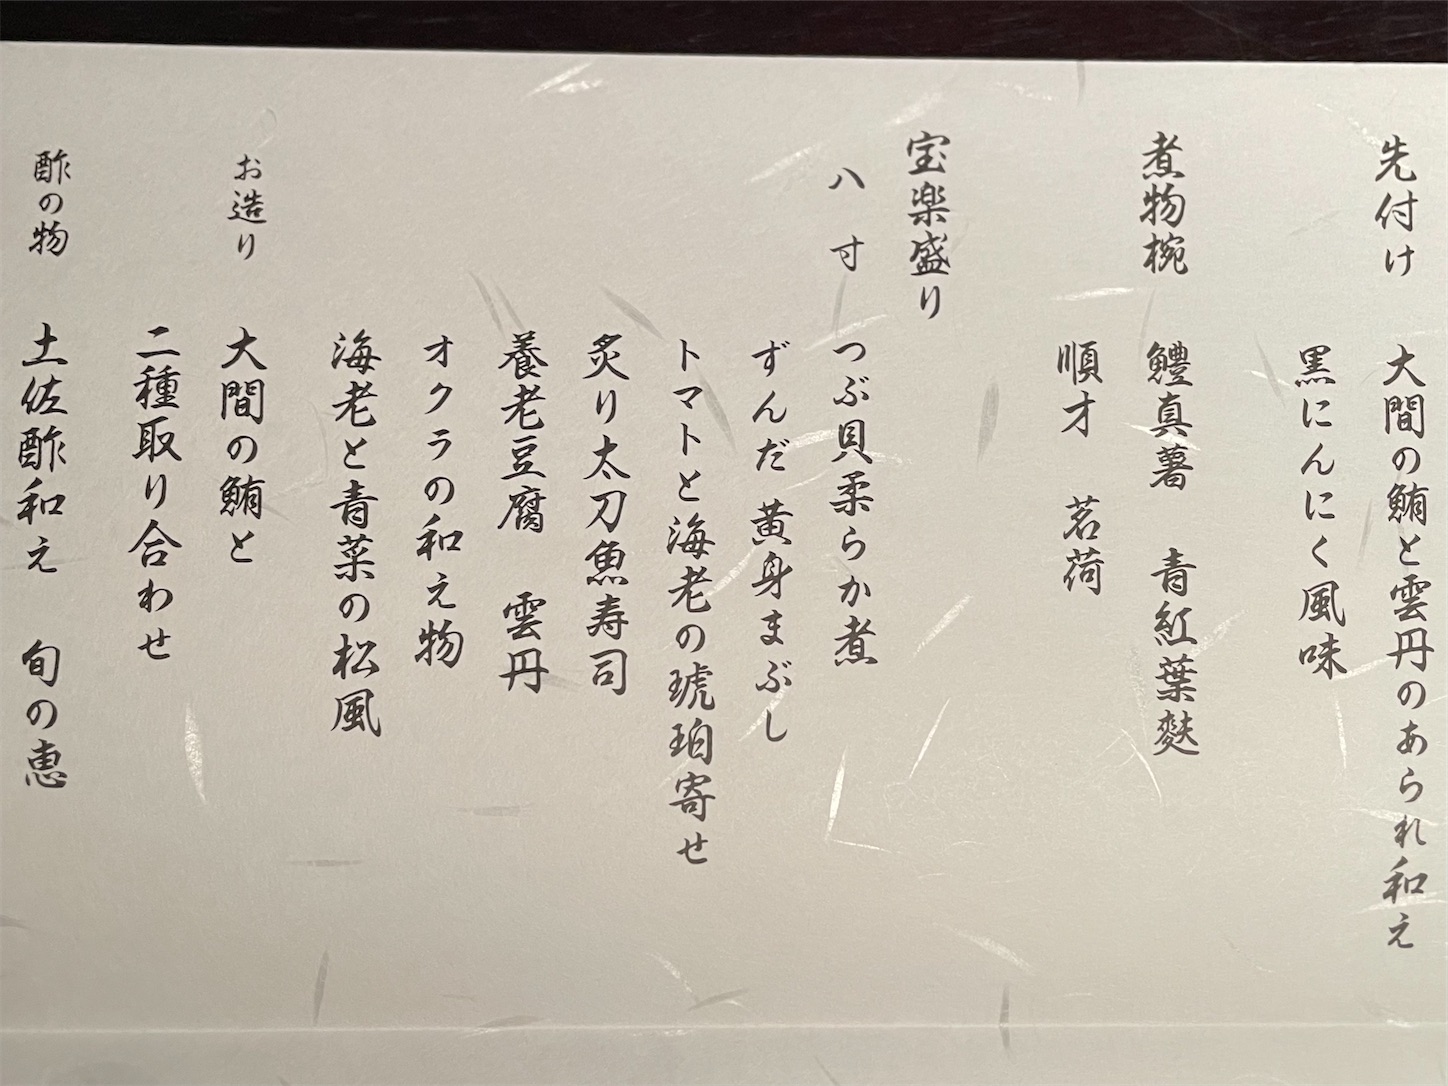 先付け　大間の鮪と雲丹のあられ和え
黒にんにく風味
煮物椀　鱧真薯　青紅葉麩
順才　茗荷
宝楽盛り
八寸　つぶ貝柔らか煮
ずんだ　黄身まぶし
トマトと海老の琥珀寄せ
炙り太刀魚寿司
養老豆腐　雲丹
オクラの和え物
海老と青菜の松風
お造り　大間の鮪と
二種取り合わせ
酢の物　土佐酢和え　旬の恵